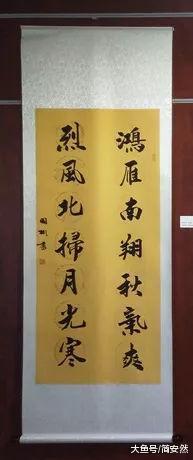 鴻雁南翔秋氣爽
烈風北掃月光寒
大魚号/简安然